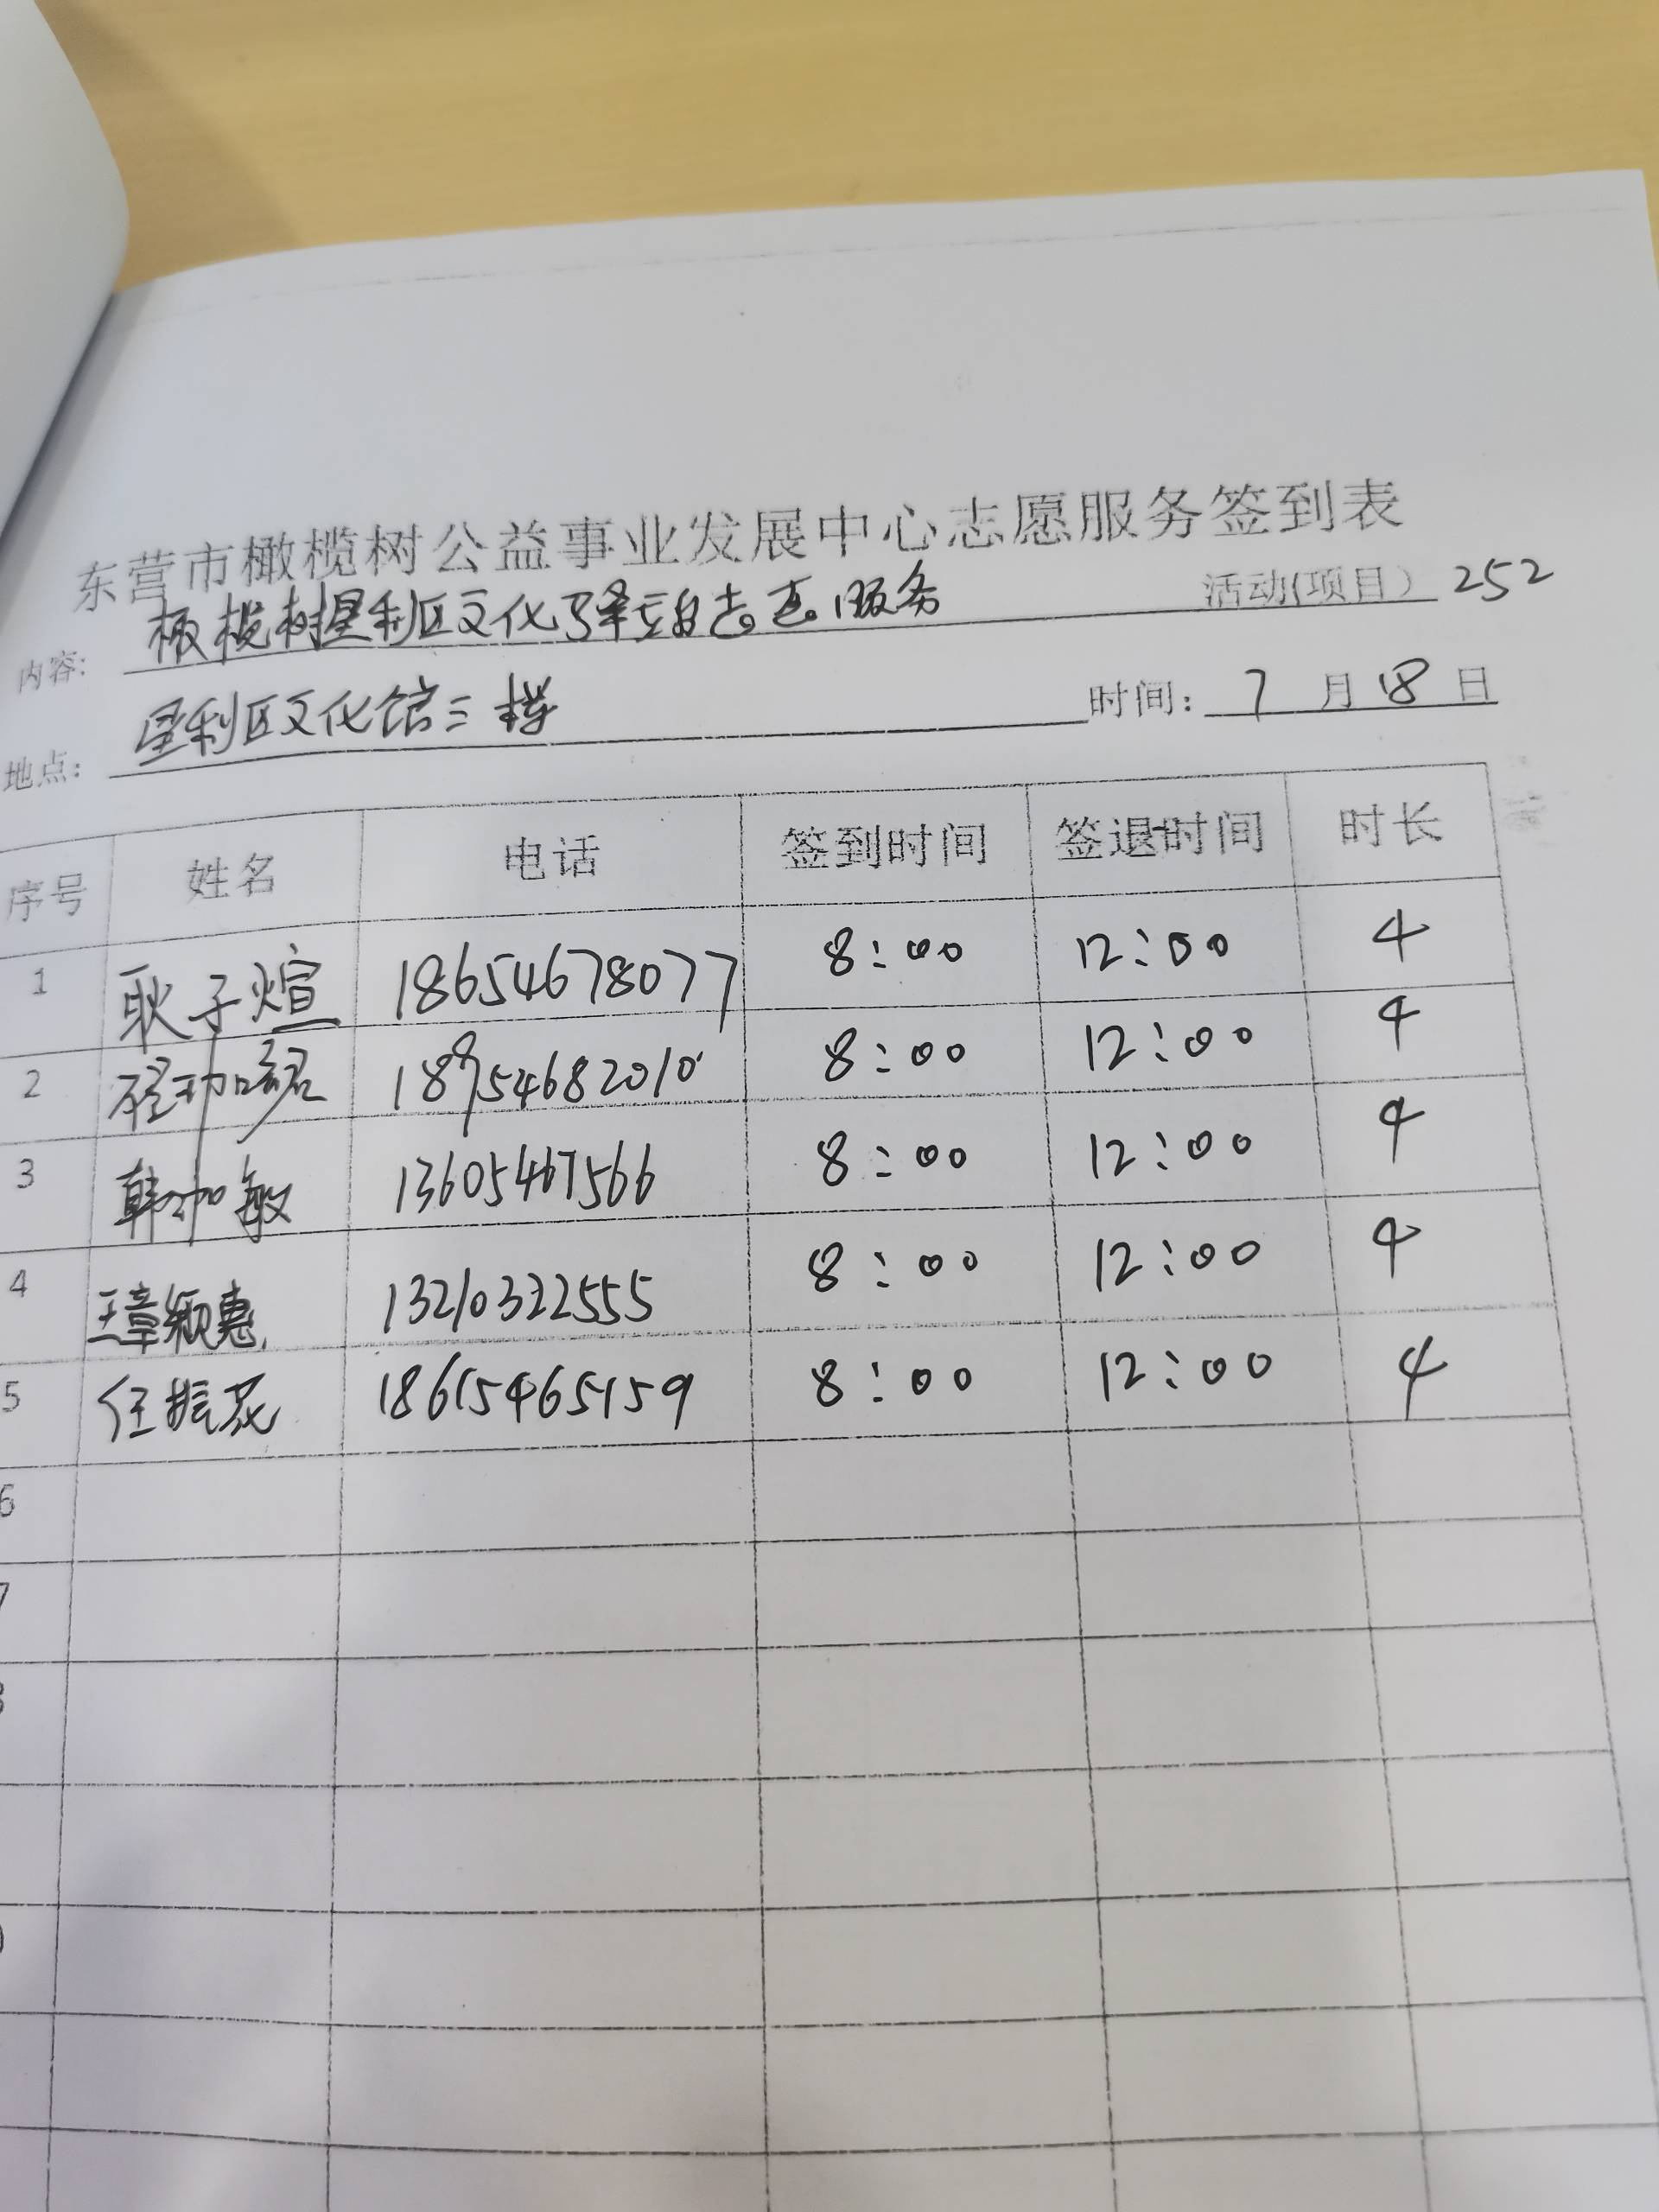 东营市橄榄树公益事业发展中心志愿服务签到表
内容: 橄榄树垦利区文化驿站志愿服务 活动(项目) 252
地点: 垦利区文化馆三楼 时间: 7月18日
序号 姓名 电话 签到时间 签退时间 时长
1 耿子煊 18654678077 8:00 12:00 4
2 18954682010 8:00 12:00 4
3 韩加敏 13605467566 8:00 12:00 4
4 王章颖惠 13210322555 8:00 12:00 4
5 任振花 18615465159 8:00 12:00 4
6
7